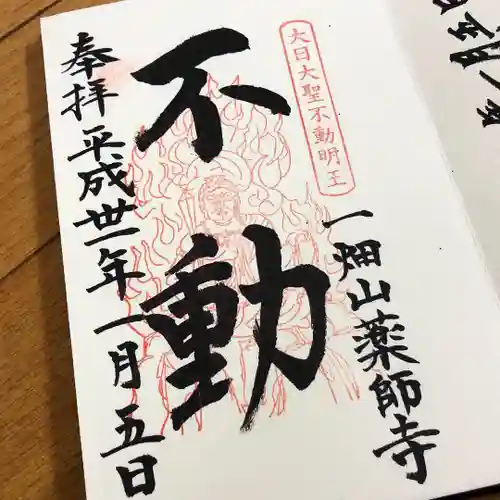 大日大聖不動明王
一畑山薬師寺
不動
奉拝 平成卅一年一月五日